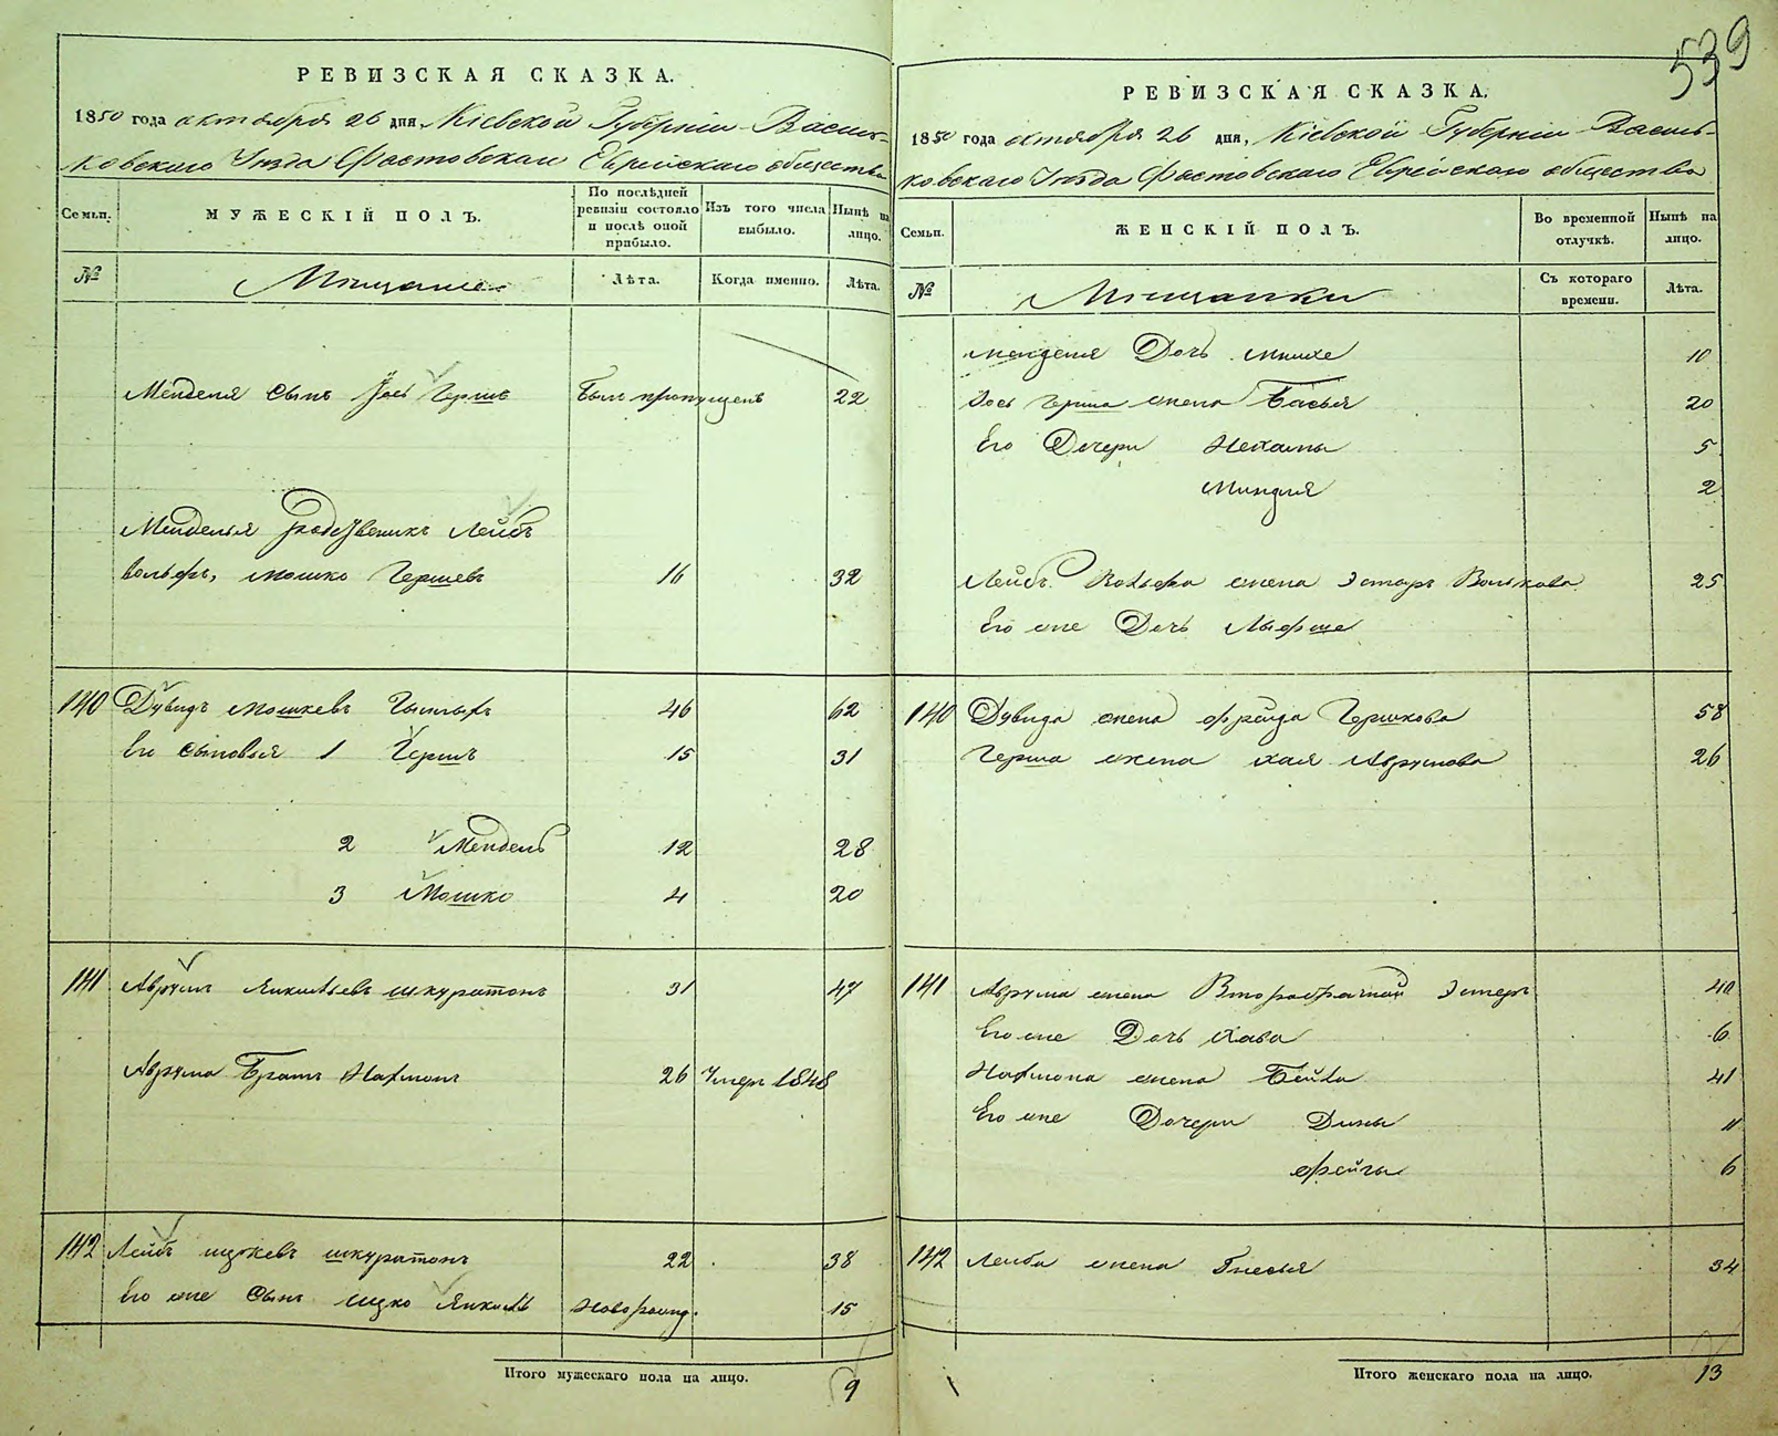 539
РЕВИЗСКАЯ СКАЗКА.
1850 года октября 26 дня, Кіевской Губерніи Василь-
ковскаго Уѣзда Фастовскаго Еврейскаго общества
Семьи.
МУЖЕСКІЙ ПОЛЪ.
По послѣдней ревизіи состояло и послѣ оной прибыло.
Изъ того числа выбыло.
Нынѣ на лицо.
№
Мѣщане
Лѣта.
Когда именно.
Лѣта.
Менделя сынъ Іось Гершъ былъ пропущенъ 22
Менделя родственикъ Лейбъ
Вольфъ, Мошко Гершевъ 16 32
140 Дувидъ Мошкевъ 46 62
Его сыновья 1 Гершъ 15 31
2 Мендель 12 28
3 Мошко 4 20
141 Аврумъ Янкелевъ Шкуратонъ 31 47
Аврума Братъ Нахманъ 26 Умеръ 1848
142 Лейбъ Ицкевъ Шкуратонъ 22 38
Его же сынъ Ицко Янкель Новорожд. 15
Итого мужескаго пола на лицо. 9
РЕВИЗСКАЯ СКАЗКА.
1850 года октября 26 дня, Кіевской Губерніи Василь-
ковскаго Уѣзда Фастовскаго Еврейскаго общества
Семьи.
ЖЕНСКІЙ ПОЛЪ.
Во временной отлучкѣ.
Нынѣ на лицо.
№
Мѣщанки
Съ котораго времени.
Лѣта.
Менделя Дочь 10
Іось Герша жена Басья 20
Его Дочери Нехамы 5
Миндля 2
Лейбъ Вольфа жена Эстеръ Волькова 25
Его же Дочь
140 Дувида жена Фрейда Гершкова 58
Герша жена Хая Аврумова 26
141 Аврума жена Второбрачная Эстеръ 40
Его же Дочь Хава 6
Нахмана жена Бейла 41
Его же Дочери Дины 11
Фейги 6
142 Лейба жена Гнесья 34
Итого женскаго пола на лицо. 13